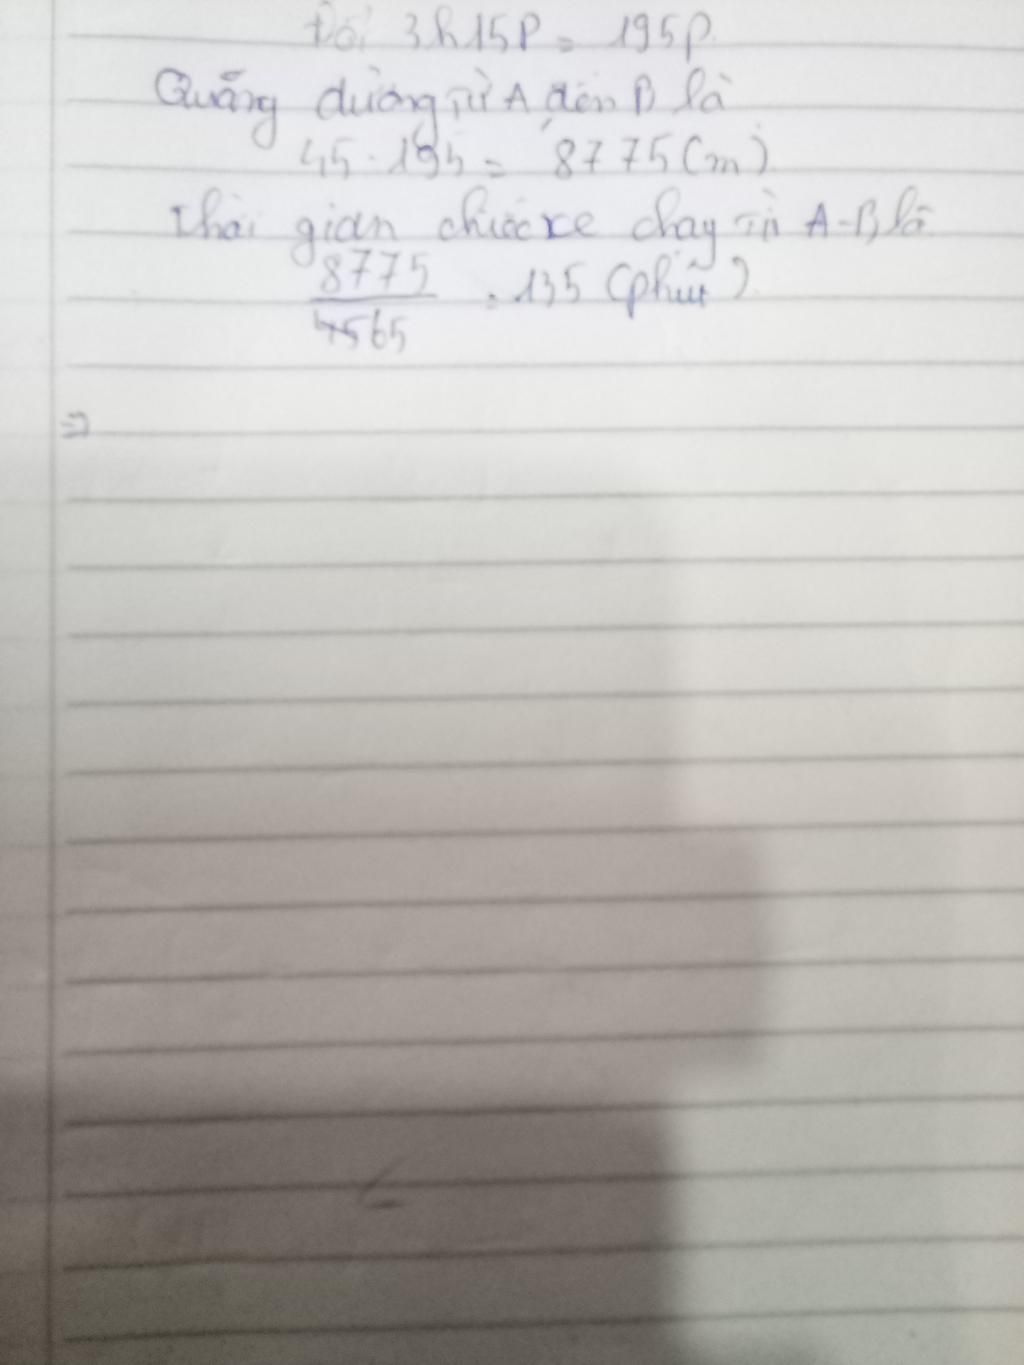 Đổi 3h15P = 195P
Quãng đường từ A đến B là
45 . 195 = 8775 (m)
Thời gian chiếc xe chạy từ A-B là
8775
65
= 135 (phút)
=>